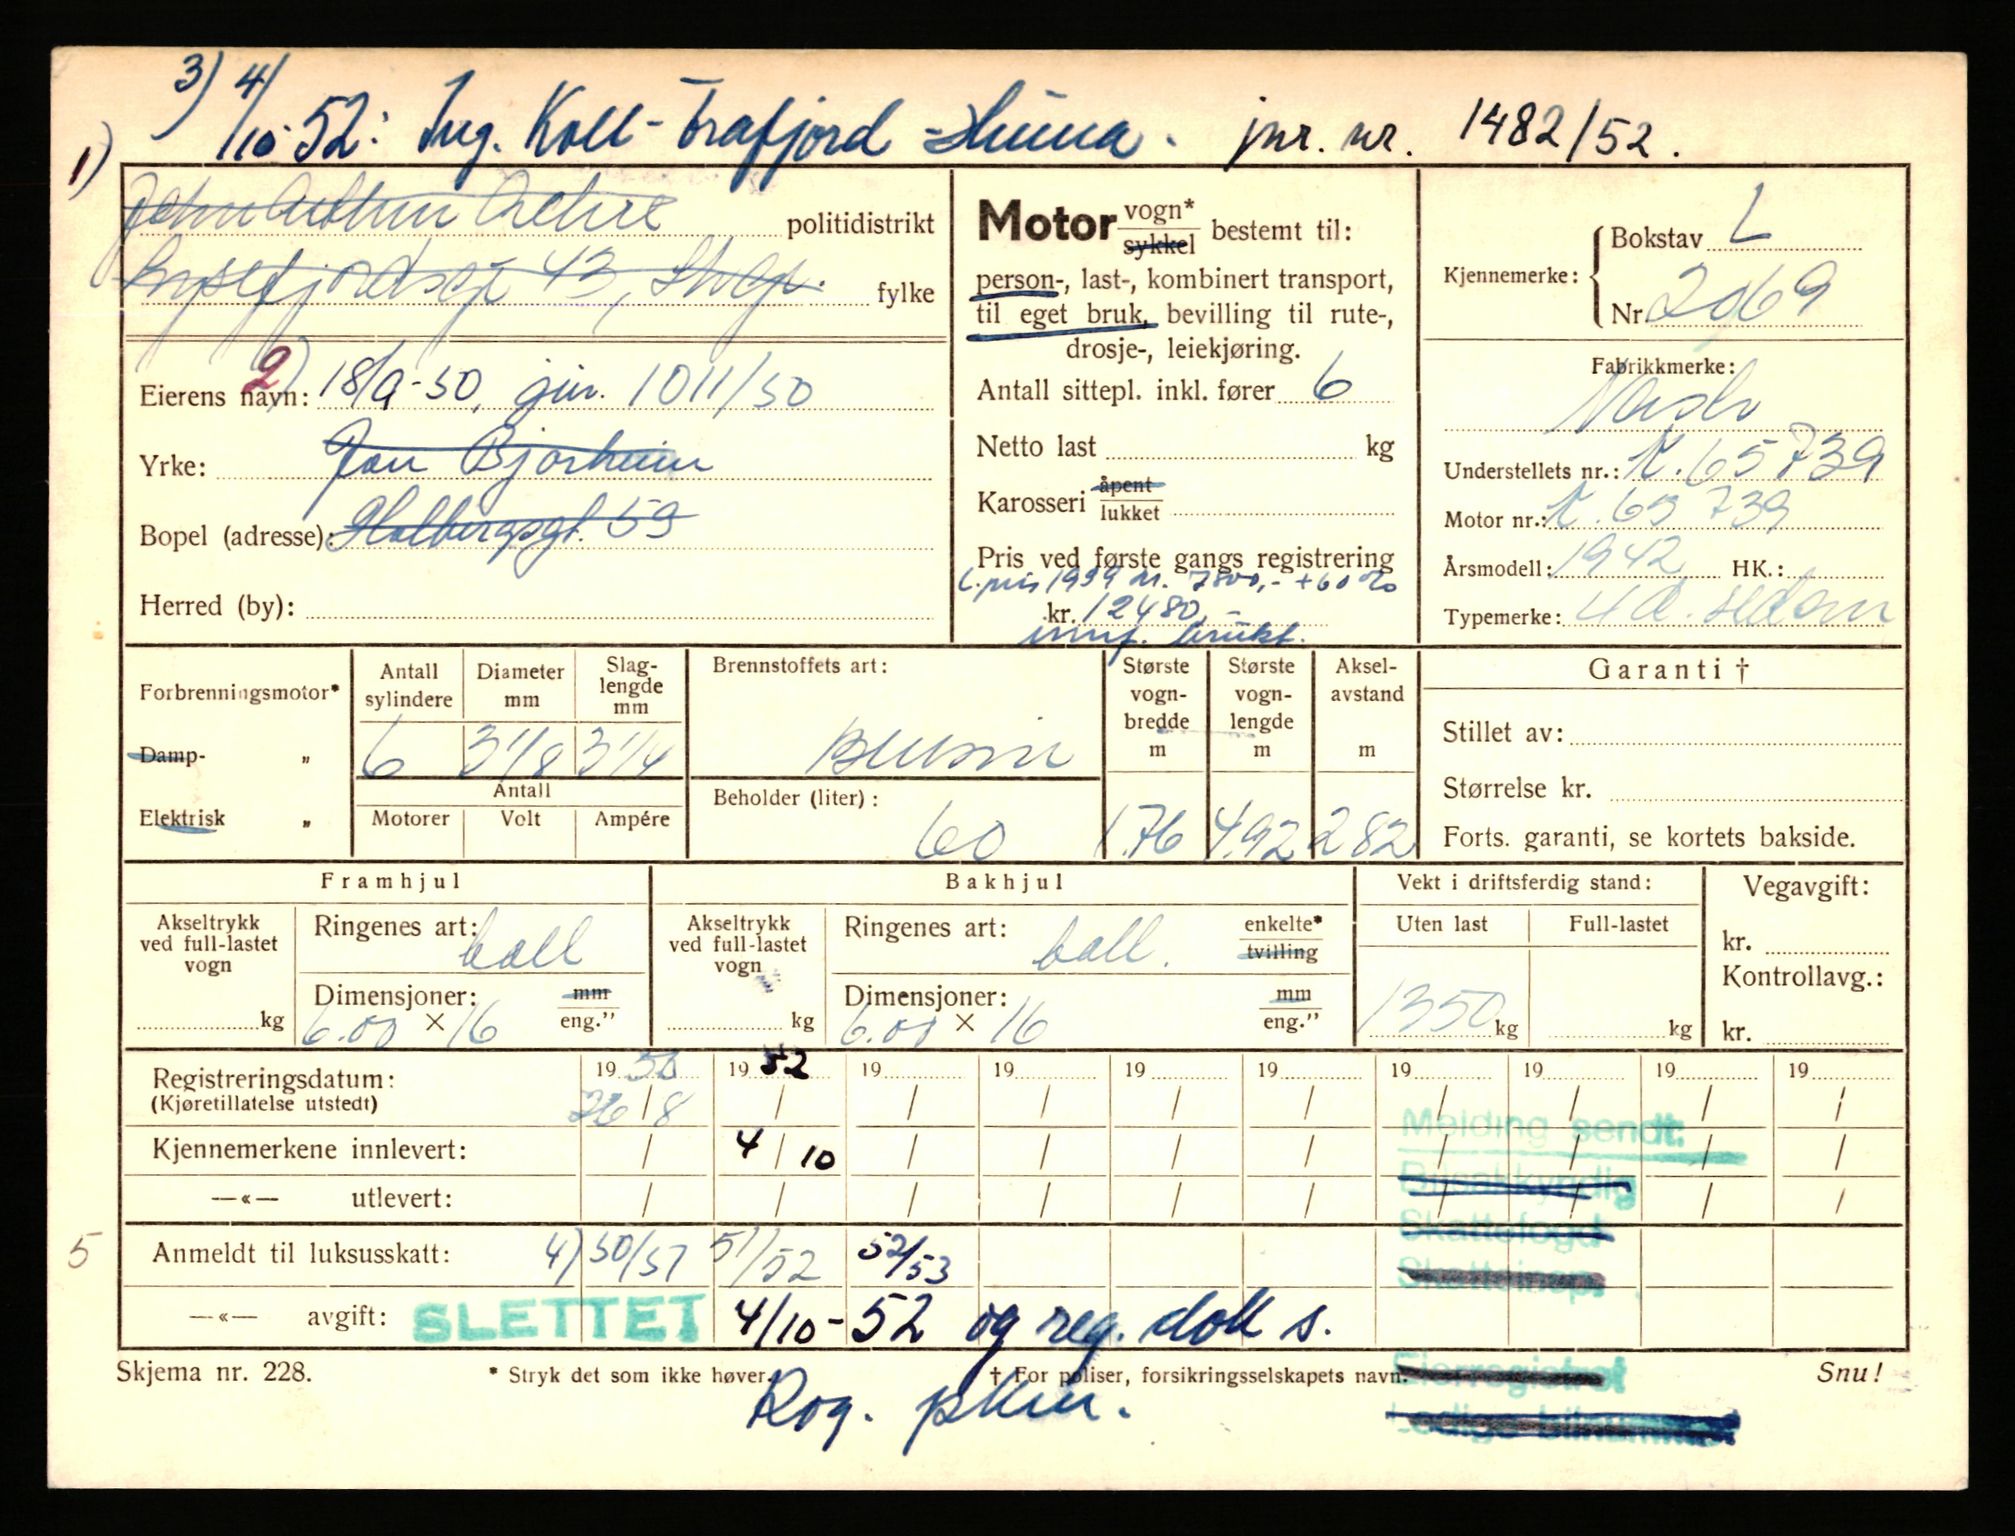 3) 4/10-52: Ing. Koll-Frafjord jnr. nr. 1482/52.
1)
politidistrikt
43, fylke
Eierens navn: 2) 18/9-50, jnr. 1011/50
Yrke: Jan Bjorheim
Bopel (adresse): Holbergsgt. 59
Herred (by):
Motor vogn* / sykkel bestemt til:
person-, last-, kombinert transport,
til eget bruk, bevilling til rute-,
drosje-, leiekjøring.
Antall sittepl. inkl. fører 6
Netto last kg
Karosseri åpent / lukket
Pris ved første gangs registrering
L.pris 1939 kr. 7800,- +60%
kr. 12480,-
innf. brukt.
Kjennemerke: Bokstav L
Nr 2069
Fabrikkmerke:
Nash
Understellets nr.: K.65739
Motor nr.: K.65739
Årsmodell: 1942 HK.:
Typemerke: 4 d. sedan
Forbrenningsmotor*
Damp- „
Elektrisk „
Antall sylindere 6
Diameter mm 3 1/8
Slaglengde mm 3 1/4
Antall
Motorer Volt Ampére
Brennstoffets art:
Bensin
Beholder (liter):
60
Største vogn-bredde m 1.76
Største vogn-lengde m 4.92
Aksel-avstand m 2 82
Garanti †
Stillet av:
Størrelse kr.
Forts. garanti, se kortets bakside.
Framhjul
Akseltrykk ved full-lastet vogn kg
Ringenes art: ball
Dimensjoner: mm / eng."
6.00 × 16
Bakhjul
Akseltrykk ved full-lastet vogn kg
Ringenes art: ball. enkelte* / tvilling
Dimensjoner: mm / eng."
6.00 × 16
Vekt i driftsferdig stand:
Uten last Full-lastet
1350 kg kg
Vegavgift:
kr.
Kontrollavg.:
kr.
Registreringsdatum: 1950 1952 19 19 19 19 19 19 19 19
(Kjøretillatelse utstedt) 26/8 / / / / / / / / /
Kjennemerkene innlevert: / 4/10 / / / / / / / /
—«— utlevert: / / / / / / / / / /
5 Anmeldt til luksusskatt: 4) 50/51 51/52 52/53
—«— avgift: SLETTET 4/10-52 og reg. dok s.
Melding sendt:
Bilsakkyndig
Skattefogd
Skatteinsp.
Eierregistret
Ledige bilnummer
Skjema nr. 228. * Stryk det som ikke høver. † For poliser, forsikringsselskapets navn. Snu!
Rog. pkm.